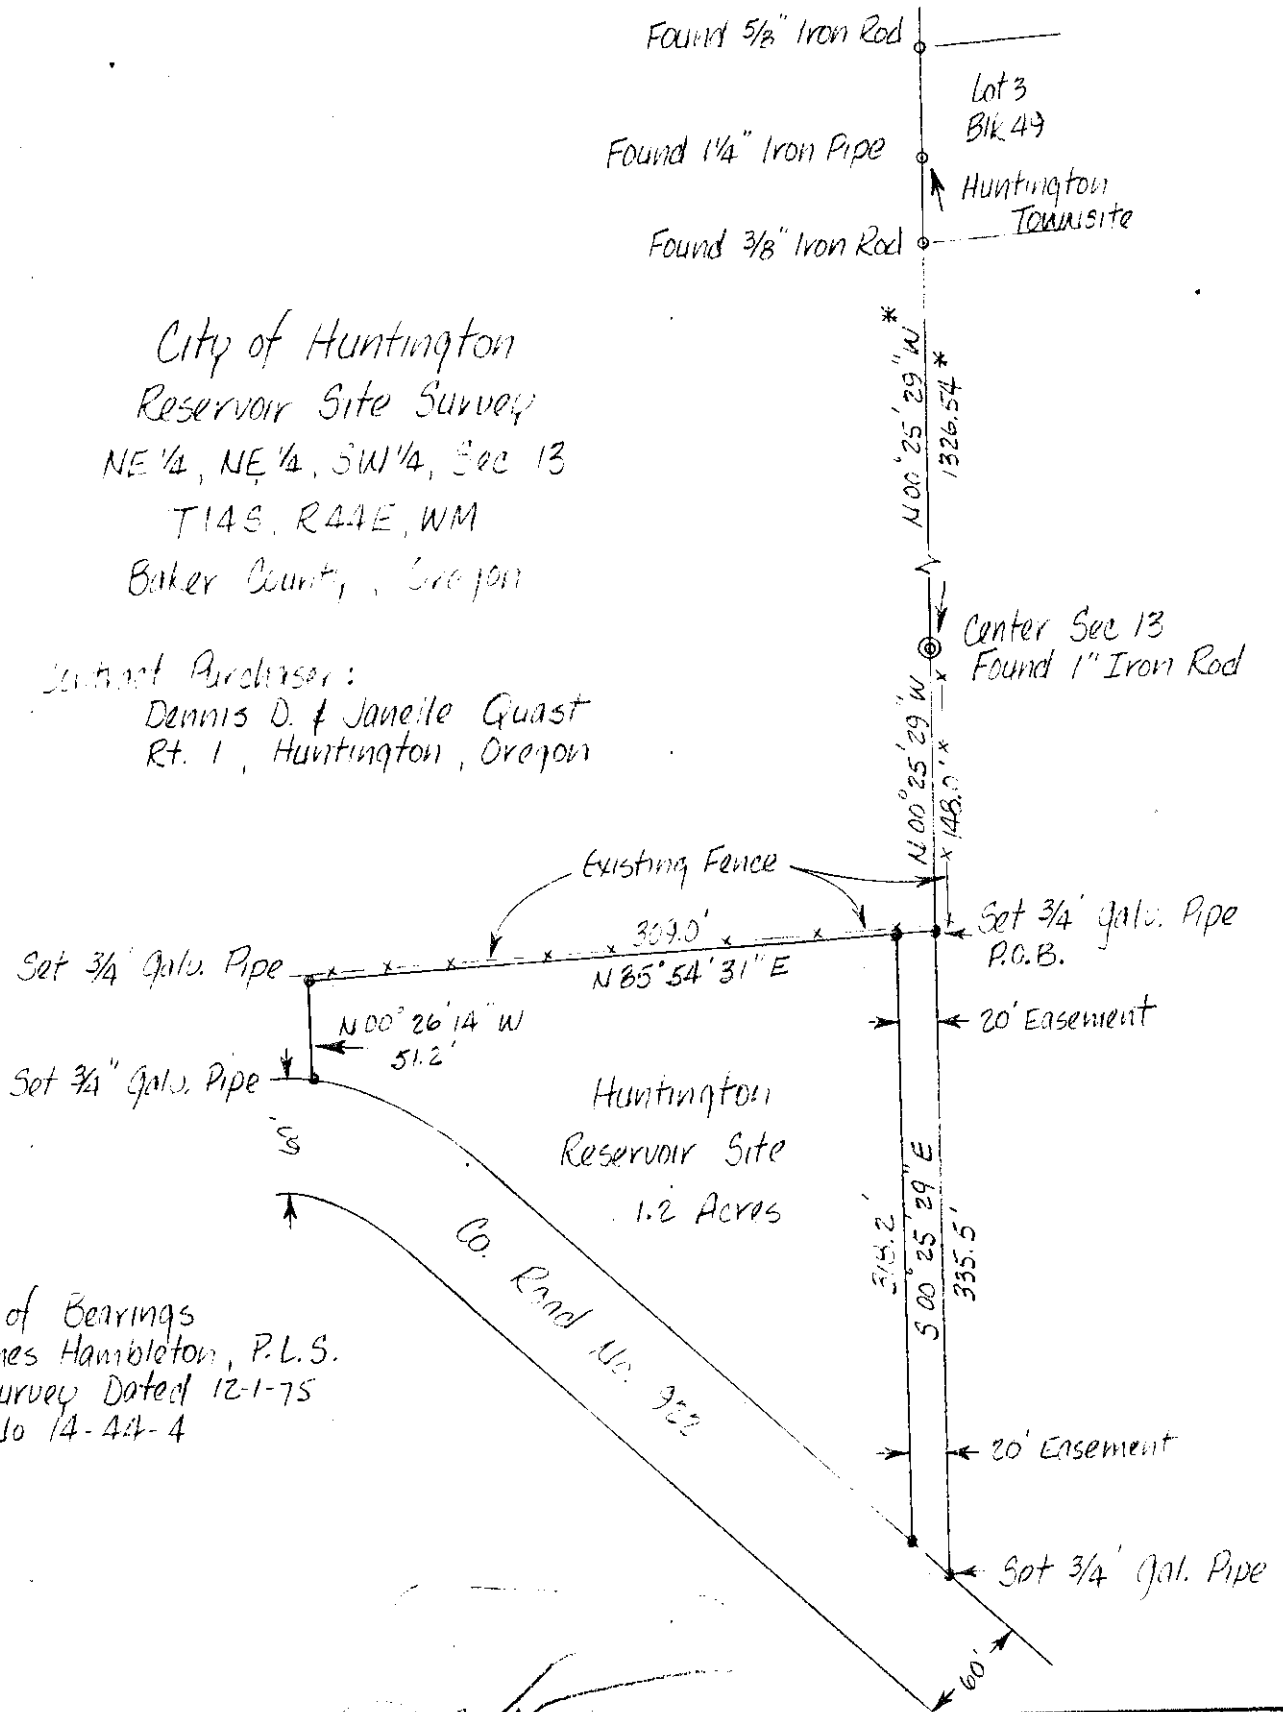 Found 5/8" Iron Rod
Lot 3
Blk 49
Found 1 1/4" Iron Pipe
Huntington
Townsite
Found 3/8" Iron Rod
N 00° 25' 29" W *
1326.54 *
City of Huntington
Reservoir Site Survey
NE 1/4, NE 1/4, SW 1/4, Sec 13
T14S, R44E, WM
Baker County, Oregon
Center Sec 13
Found 1" Iron Rod
Purchaser:
Dennis D. & Janeile Quast
Rt. 1, Huntington, Oregon
N 00° 25' 29" W
148.0'
Existing Fence
309.0'
N 85° 54' 31" E
Set 3/4' Galv. Pipe
Set 3/4' galv. Pipe
P.O.B.
20' Easement
N 00° 26' 14" W
51.2'
Set 3/4" Galv. Pipe
Huntington
Reservoir Site
1.2 Acres
318.2'
S 00° 25' 29" E
335.5'
Co. Road No. 922
of Bearings
nes Hambleton, P.L.S.
urvey Dated 12-1-75
No 14-44-4
20' Easement
Set 3/4' Gal. Pipe
60'